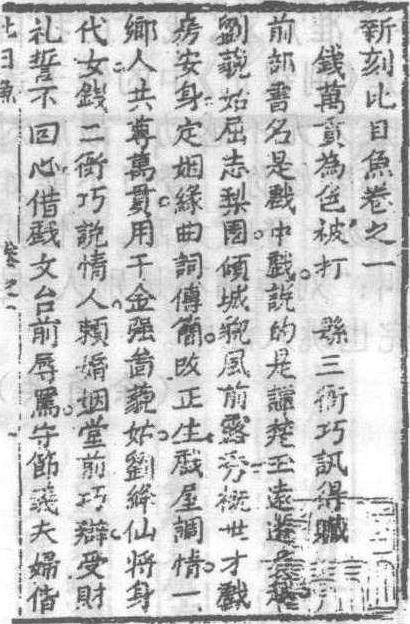 新刻比目魚卷之一
錢萬貫為色被打 縣三衙巧訊得贓
前部書名是戲中戲說的是譚楚玉遠遊吳越
劉藐姑屈志梨園傾城貌風前露秀概世才戲
房安身定姻緣曲詞傳簡改正生戲屋調情一
鄉人共尊萬貫用千金強啚藐姑劉絳仙將身
代女錢二衙巧說情人賴婚姻堂前巧辯受財
礼誓不回心借戲文台前辱罵守節義夫婦偕
比目魚 卷之一